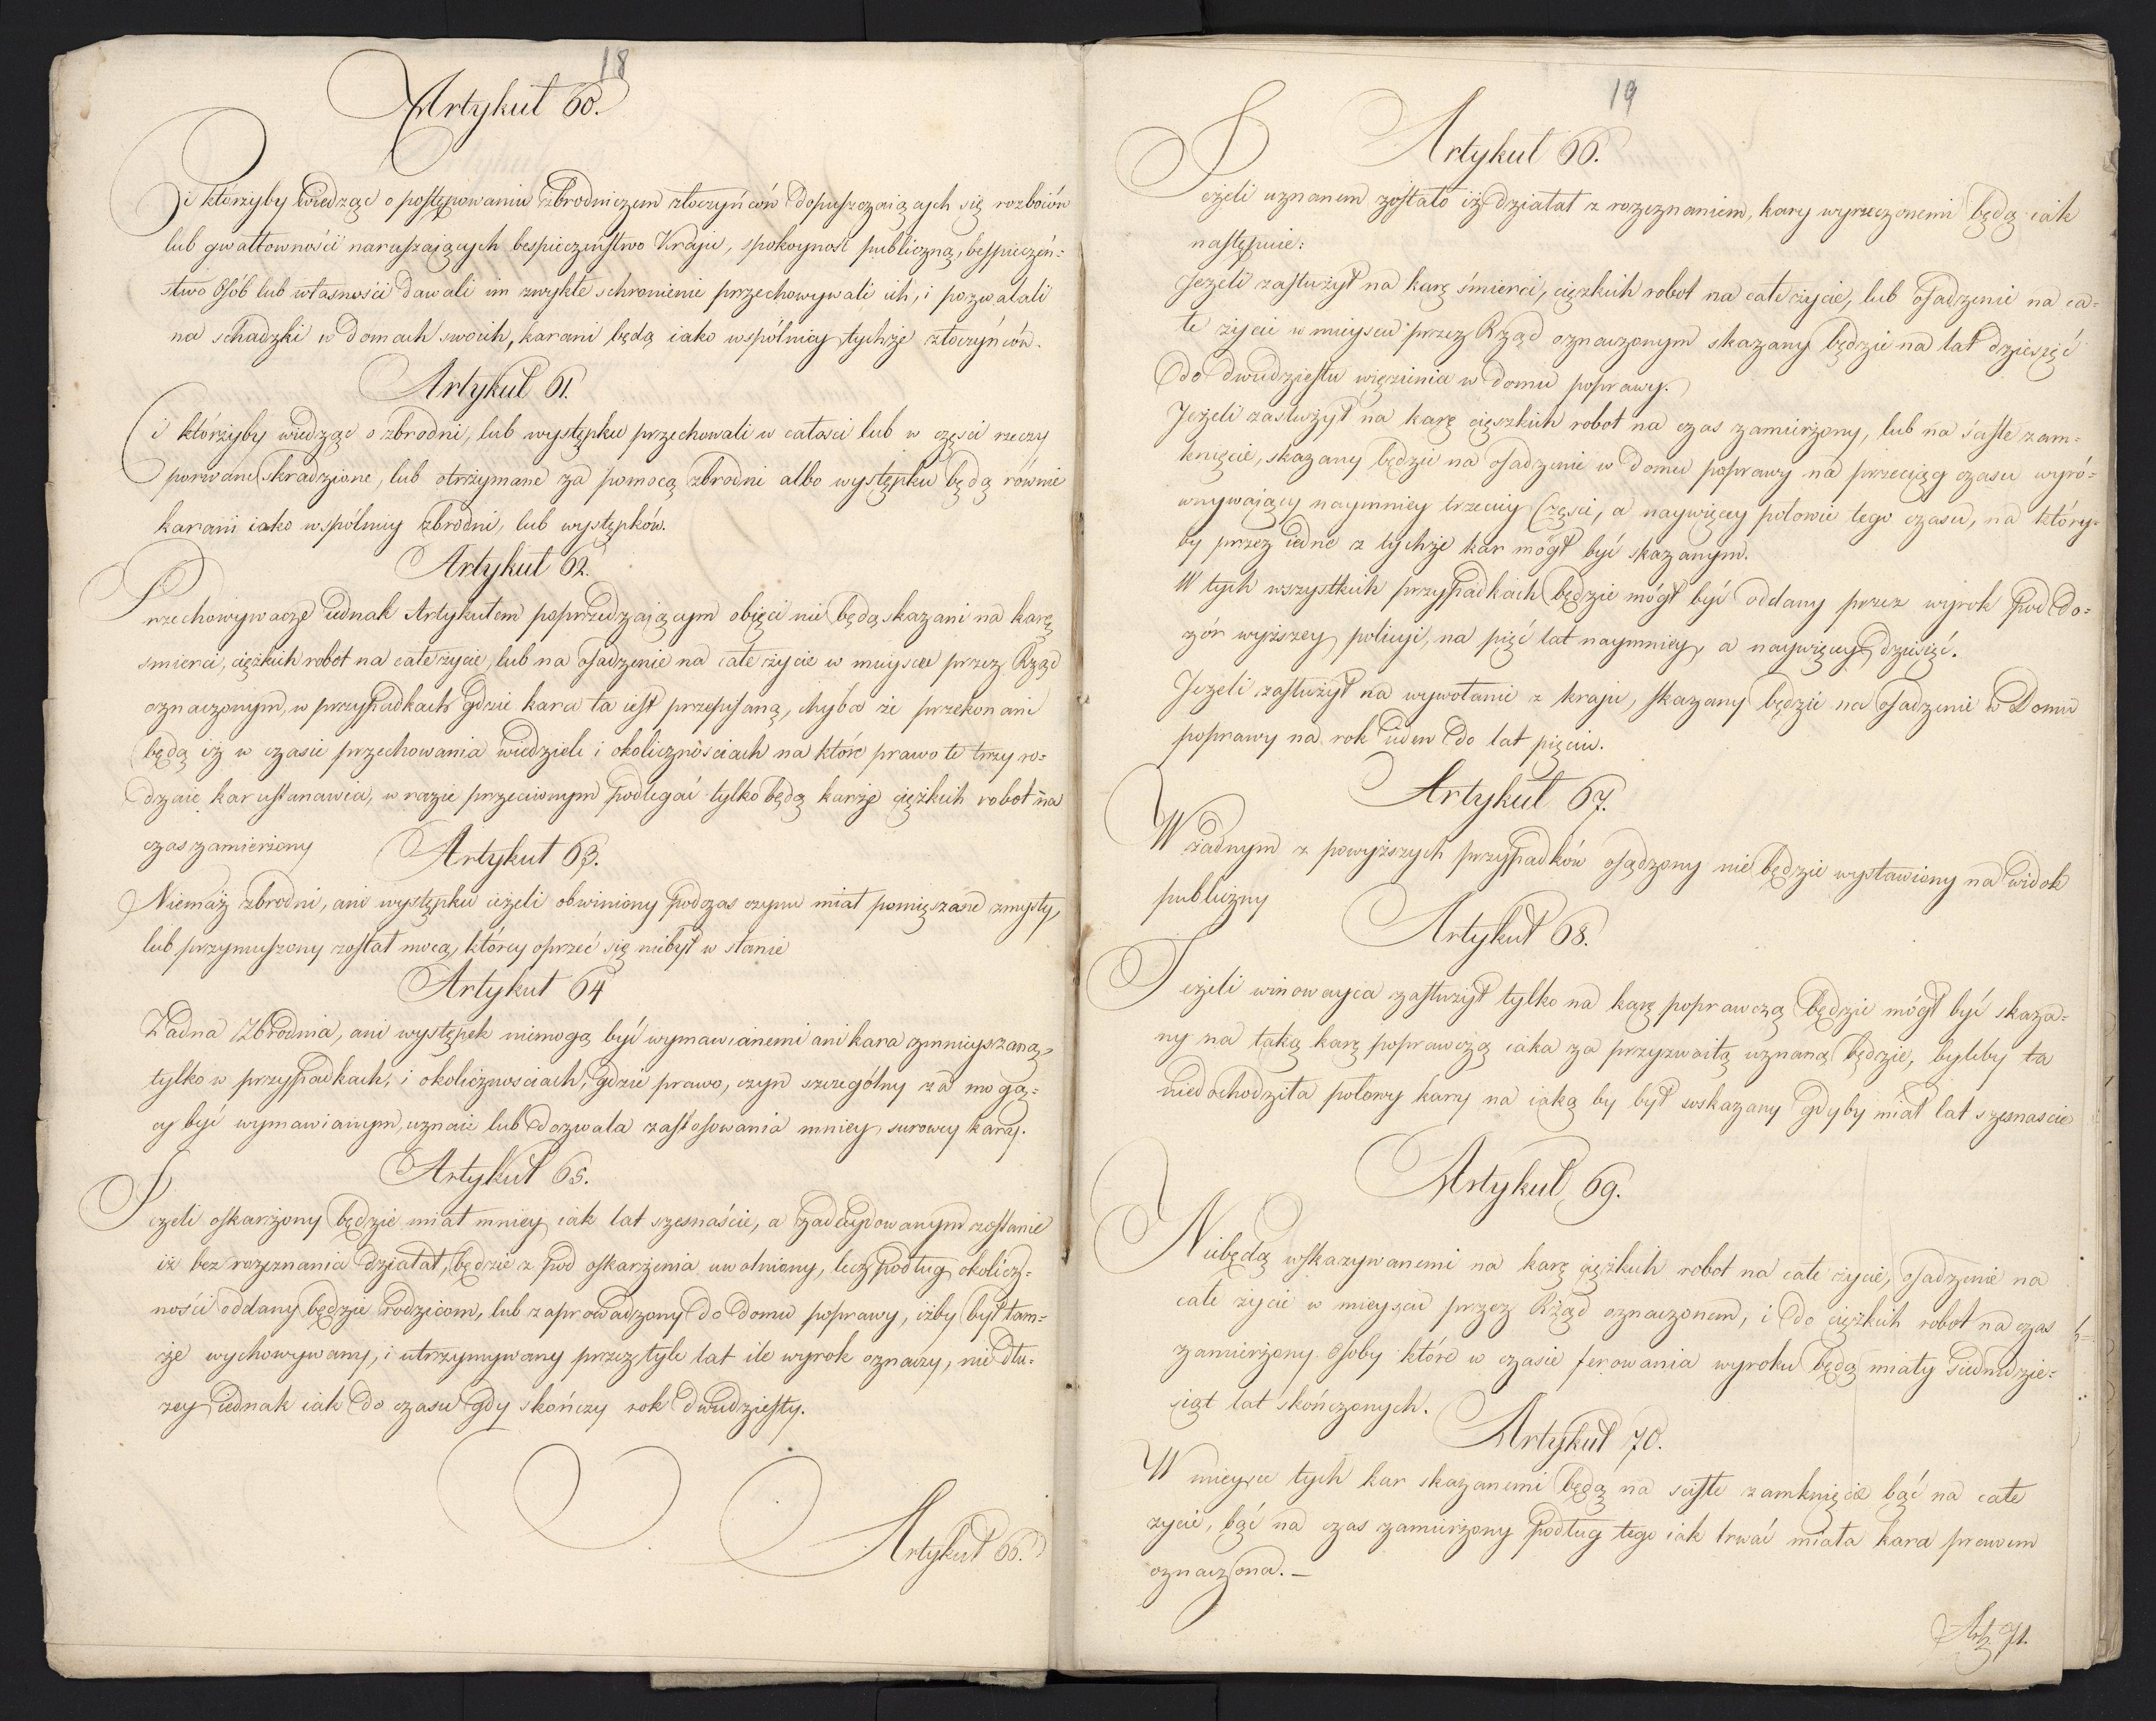 18
Artykuł 60.
Ci którzyby wiedząc o postępowaniu zbrodniczem złoczyńców dopuszczaiących się rozboiów
lub gwałtowności naruszaiących bespieczeństwo Kraju, spokoyność publiczną, bespieczeń=
stwo Osób lub własności dawali im zwykłe schronienie przechowywali ich, i pozwalali
na schadzki w domach swoich, karani będą iako wspólnicy tychże złoczyńców.
Artykuł 61.
Ci którzyby wiedząc o zbrodni, lub występku przechowali w całości lub w części rzeczy
porwane skradzione, lub otrzymane za pomocą zbrodni albo występku będą równie
karani iako wspólnicy zbrodni, lub występków.
Artykuł 62.
Przechowywacze iednak Artykułem poprzedzaiącym obięci nie będą skazani na karę
śmierci, ciężkich robot na całe życie, lub na osadzenie na całe życie w mieyscu przez Rząd
oznaczonym, w przypadkach gdzie kara ta iest przepisaną, chyba że przekonani
będą iż w czasie przechowania wiedzieli i okolicznościach na które prawo te trzy ro=
dzaie kar ustanawia, w razie przeciwnym podlegać tylko będą karze ciężkich robot na
czas zamierzony
Artykuł 63.
Niemasz zbrodni, ani występku ieżeli obwiniony podczas czynu miał pomięszane zmysły,
lub przymuszony został mocą, którey oprzeć się niebył w stanie
Artykuł 64
Żadna Zbrodnia, ani występek niemogą być wymawianemi ani kara zmnieyszaną,
tylko w przypadkach, i okolicznościach, gdzie prawo, czyn szczególny za mogą=
cy być wymawianym, uznaie lub dozwala zastosowania mniey surowey kary.
Artykuł 65.
Jeżeli oskarżony będzie miał mniey iak lat szesnaście, a zadecydowanym zostanie
iż bez rozeznania działał, będzie z pod oskarżenia uwolniony, lecz podług okolicz=
ności oddany będzie rodzicom, lub zaprowadzony do domu poprawy, iżby był tam=
że wychowywany, i utrzymywany przez tyle lat ile wyrok oznaczy, nie dłu=
żey iednak iak do czasu gdy skończy rok dwudziesty.
Artykuł 66.
19
Artykuł 66.
Jeżeli uznanem zostało iż działał z rozeznaniem, kary wyrzeczonemi będą iak
następuie:
Jeżeli zasłużył na karę śmierci, ciężkich robot na całe życie, lub osadzenie na ca=
łe życie w mieyscu przez Rząd oznaczonym skazany będzie na lat dziesięć
do dwudziestu więzienia w domu poprawy.
Jeżeli zasłużył na karę cięszkich robot na czas zamierzony, lub na ścisłe zam=
knięcie, skazany będzie na osadzenie w domu poprawy na przeciąg czasu wyró=
wnywaiący naymniey trzeciey Części, a naywięcey połowie tego czasu, na który=
by przez iedne z tychże kar mógł być skazanym.
W tych wszystkich przypadkach będzie mógł być oddany przez wyrok pod do=
zór wyższey policyi, na pięć lat naymniey, a naywięcey dziesięć.
Jeżeli zasłużył na wywołanie z kraju, skazany będzie na osadzenie w Domu
poprawy na rok ieden do lat pięciu.
Artykuł 67.
W żadnym z powyższych przypadków osądzony nie będzie wystawiony na widok
publiczny
Artykuł 68.
Jeżeli winowayca zasłużył tylko na karę poprawczą będzie mógł być skaza=
ny na taką karę poprawczą iaka za przyzwoitą uznaną będzie, byleby ta
niedochodziła połowy kary na iaką by był wskazany gdyby miał lat szesnascie
Artykuł 69.
Niebędą wskazywanemi na karę ciężkich robot na całe życie, osadzenie na
całe życie w mieyscu przez Rząd oznaczonem, i do ciężkich robot na czas
zamierzony Osoby które w czasie ferowania wyroku będą miały siedmdzie=
siąt lat skończonych.
Artykuł 70.
W mieyscu tych kar skazanemi będą na ścisłe zamknięcie bąć na całe
życie, bąć na czas zamierzony podług tego iak trwać miała kara prawem
oznaczona. —
Art. 71.